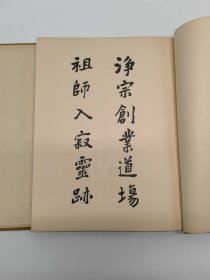 淨宗創業道場
祖師入寂靈跡